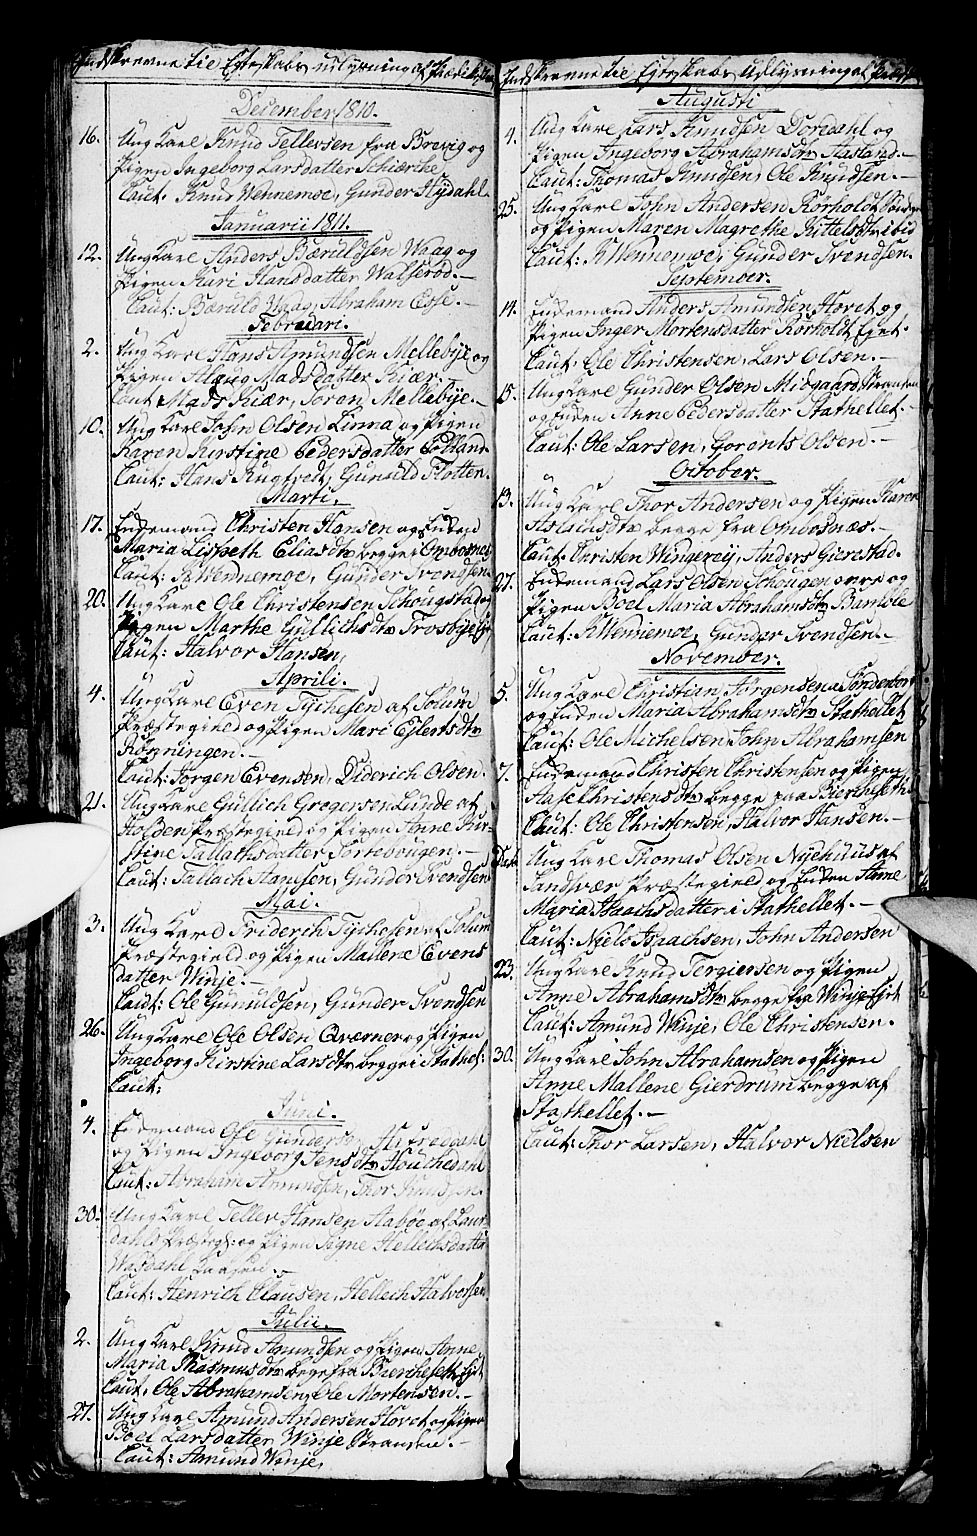 Indskrevne til Egteskabs udlysning af Prædikestolen
December 1810.
16. Ung Karl Knud Tellefsen fra Brevig og
Pigen Ingeborg Larsdatter Schierke
Caut. Knud Wennemoe, Gunder Rydahl
Januarii 1811.
12. Ung Karl Anders Bæruldsen Waag og
Pigen Kari Hansdatter Valserød.
Caut: Bæruld Vaag, Abraham Esse.
Februari.
2. Ung Karl Hans Amundsen Mellebye og
Pigen Alaug Madsdatter Kiær.
Caut: Mads Kiær, Søren Mellebye.
10. Ung Karl John Olsen Linna og Pigen
Karen Kirstine Pedersdatter
Caut: Hans Gunuld Flotten.
Marti.
17. Enkemand Christen Hansen og Enken
Maria Lisbeth Eliasdtr begge i Ombosnes
Caut: K Wennemoe, Gunder Svendsen
20. Ung Karl Ole Christensen Schougstad og
Pigen Marthe Gullichsdtr Trosbye
Caut: Halvor Hansen,
Aprili.
4. Ung Karl Even Tychesen af Solum
Præstegield og Pigen Mari Eylertsdtr
Rørungen.
Caut: Jørgen Evensen, Diderich Olsen.
21. Ung Karl Gullich Gregersen Lunde af
Holden Præstegield og Pigen Anne Kir-
stine Tallachsdatter Tortebougen.
Caut: Tallach Hansen, Gunder Svendsen
Mai.
3. Ung Karl Friderich Tychesen af Solum
Præstegield og Pigen Mallene Evens
datter Winje.
Caut: Ole Gunuldsen, Gunder Svendsen
26. Ung Karl Ole Olsen Qværner og Pigen
Ingeborg Kirstine Larsdtr begge i Stathel:
Caut:
Juni.
4. Enkemand Ole Gundersen
og Pigen Ingeborg Jensdtr Houkedahl
Caut: Abraham Amundsen, Thor Knudsen.
30. Ung Karl Tellef Hansen Aabøe af Laur-
dahls Præstegi: og Pigen Signe Hellechsdatter
Wasdahl
Caut: Henrich Clausen, Hellech Halvorsen
Julii.
2. Ung Karl Knud Amundsen og Pigen Anne
Maria Rasmusdtr begge fra Biercheseth
Caut, Ole Abrahamsen, Ole Mortensen.
27. Ung Karl Amund Andersen Hovet og Pigen
Boel Larsdatter Winje Stranden.
Caut: Amund Winje,
Indskrevne til Egteskabs Udlysning af
Augusti
4. Ung Karl Lars Knudsen Dordahl og
Pigen Ingeborg Abrahamsdtr Aasland.
Caut: Thomas Knudsen, Ole Knudsen.
25. Ung Karl John Andersen Rørholdt Søndre
og Pigen Maren Magrethe Kittelsdtr ibid
Caut: K Wennemoe, Gunder Svendsen.
September.
14. Enkemand Anders Amundsen Hovet og
Pigen Inger Mortensdatter Rørholdt Eyet.
Caut: Ole Christensen, Lars Olsen.
15. Ung Karl Gunder Olsen Midgaard Stranden
og Enken Anne Pedersdatter Stathellet.
Caut: Ole Larsen, Goronts Olsen.
October.
13. Ung Karl Thor Andersen og Pigen Karen
Aslachsdtr begge fra Ombosnæs.
Caut: Christen Wingerey, Anders Gierestad.
27. Enkemand Lars Olsen Schougen øvre og
Pigen Boel Maria Abrahamsdtr Bamble
Caut: K Wennemoe, Gunder Svendsen.
November.
5. Ung Karl Christian Jørgensen a Sønderborg
og Enken Maria Abrahamsdtr Stathellet
Caut: Ole Michelsen, John Abrahamsen
7. Enkemand Christen Christensen og Pigen
Aase Christensdtr begge paa Biercheseth
Caut: Ole Christensen, Halvor Hansen.
Ung Karl Thomas Olsen Nyehuus af
Sandsvær Præstegield og Enken Anne
Maria Isaachsdatter i Stathellet.
Caut: Njels Isaachsen, John Andersen
23. Ung Karl Knud Tergiersen og Pigen
Anne Abrahamsdtr begge fra Winje Eyet
Caut: Amund Winje, Ole Christensen.
30. Ung Karl John Abrahamsen og Pigen
Anne Mallene Gierdrum begge af
Stathellet.
Caut: Thor Larsen, Halvor Nielsen